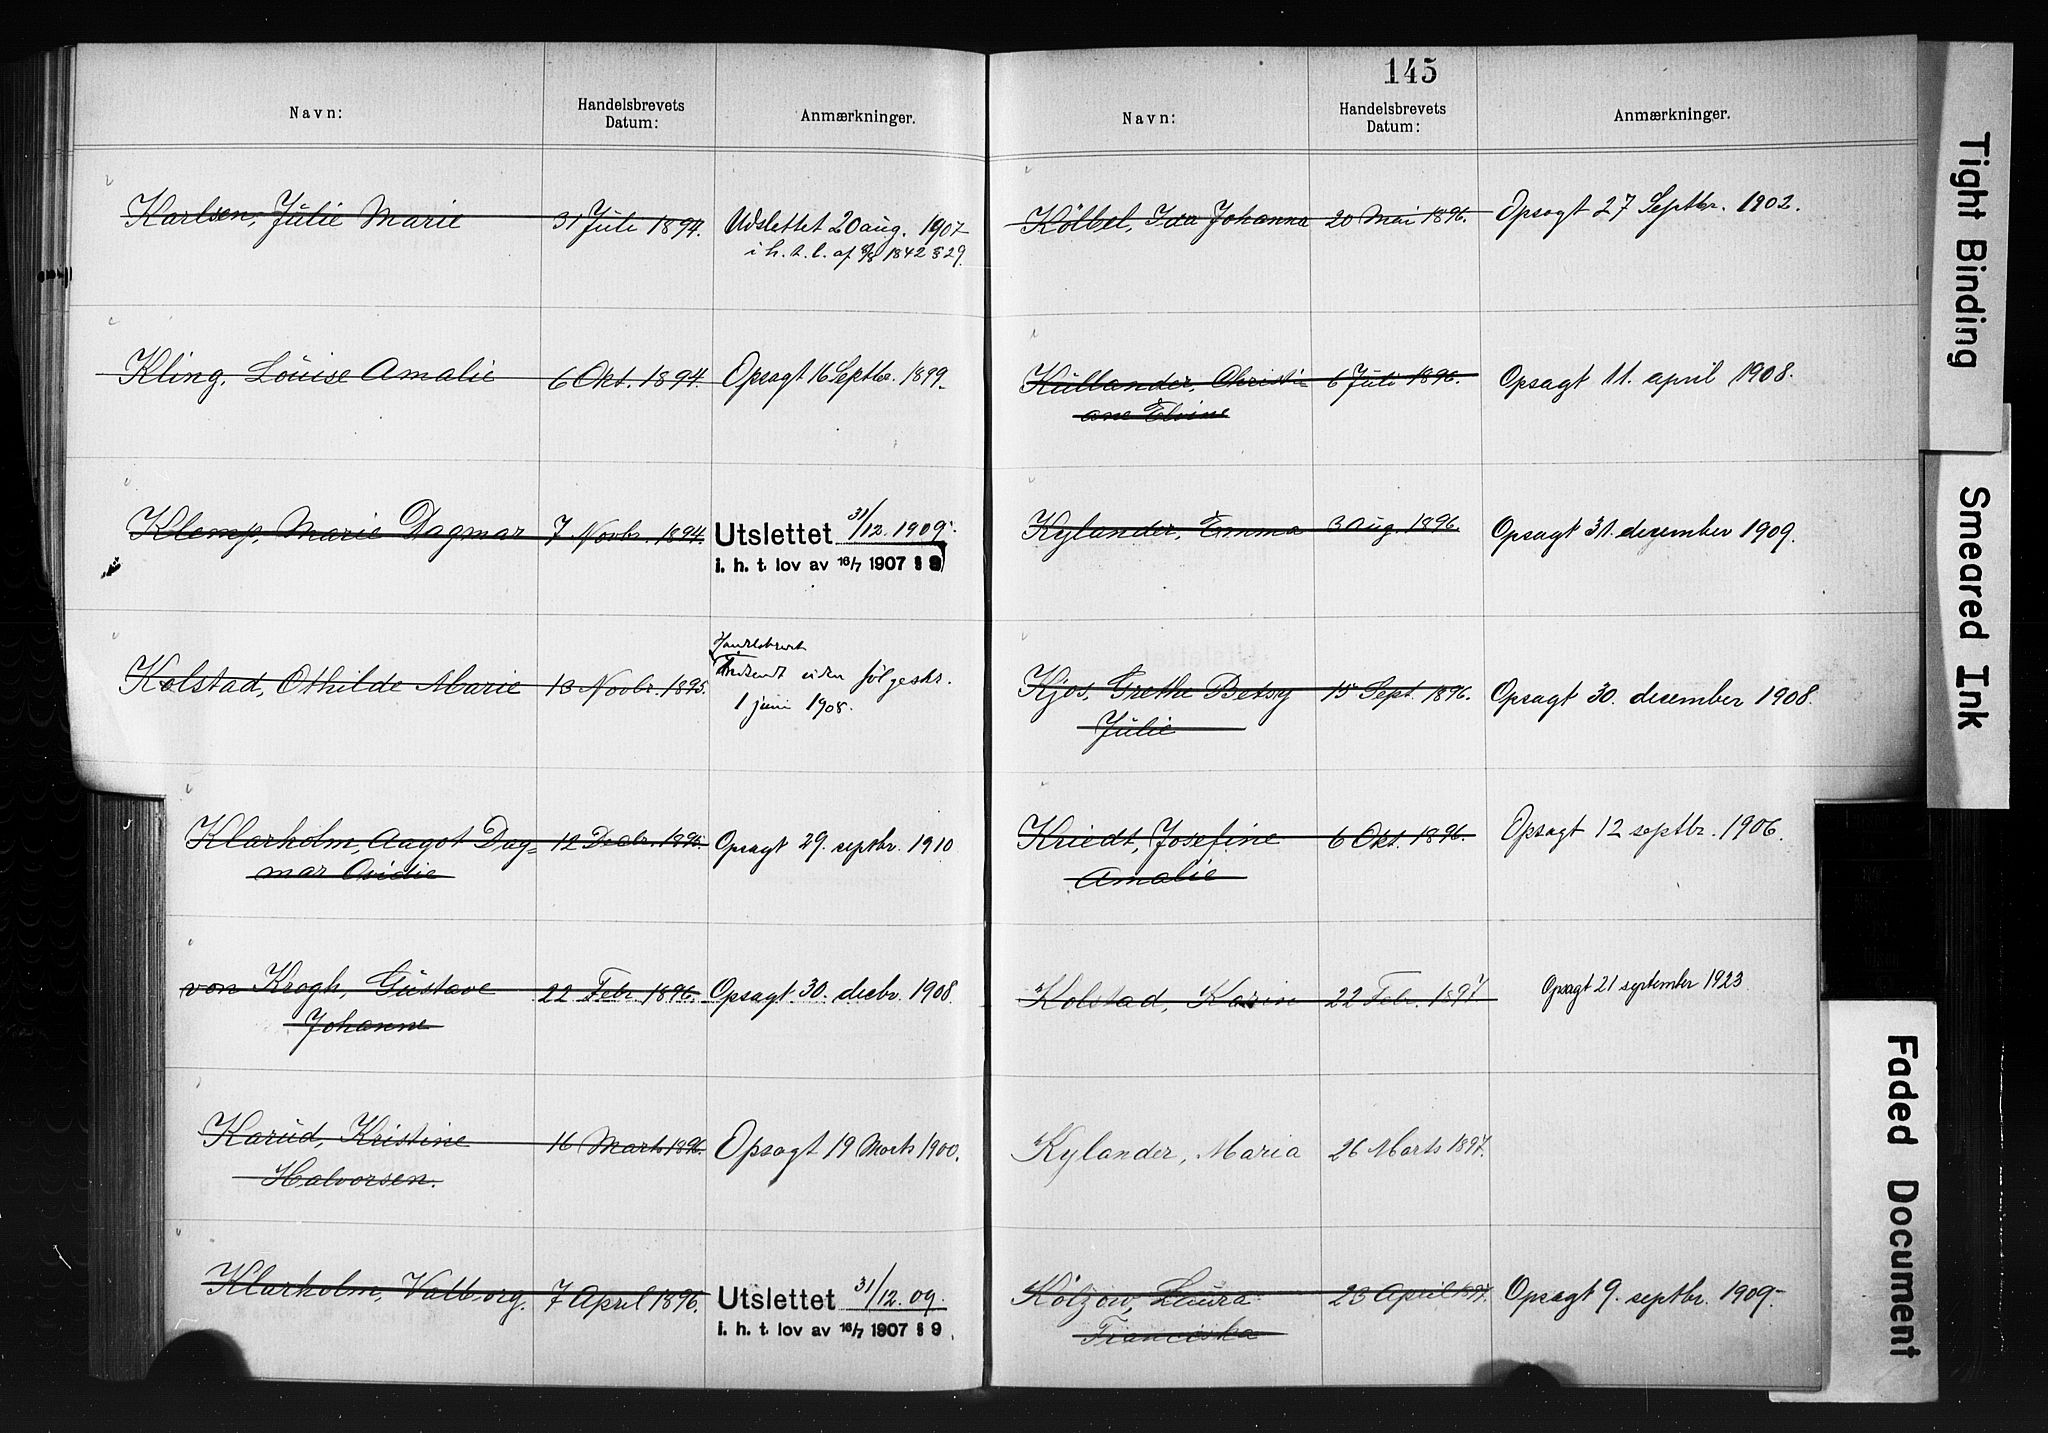 Navn:
Handelsbrevets
Datum:
Anmærkninger.
Karlsen, Julie Marie 31 Juli 1894. Udslettet 20 aug. 1907
i h. t. l. af 8/8 1842 § 29.
Kling, Louise Amalie 6 Okt. 1894. Opsagt 16 Septbr. 1899.
Klemp, Marie Dagmar 7 Novbr. 1894. Utslettet 31/12. 1909.
i. h. t. lov av 16/7 1907 § 9
Handelsbrevet
Kolstad, Othilde Marie 13 Novbr. 1895. Indsendt uden følgeskr.
1 juni 1908.
Klarholm, Aagot Dag= 12 Decbr. 1895. Opsagt 29. septbr. 1910
mar Ovidie
von Krogh, Gustave 22 Febr. 1896. Opsagt 30. decbr. 1908.
Johanne
Karud, Kristine 16 Marts 1896. Opsagt 19 Marts 1900.
Halvorsen.
Klarholm, Valborg. 7 April 1896. Utslettet 31/12. 09.
i. h. t. lov av 16/7 1907 § 9
145
Navn:
Handelsbrevets
Datum:
Anmærkninger.
Kölbel, Ida Johanna 20 Mai 1896. Opsagt 27 Septbr. 1902.
Küllander, Christi 6 Juli 1896. Opsagt 11. april 1908.
ane Elvine
Kylander, Emma 3 Aug. 1896. Opsagt 31. dezember 1909.
Kjos, Grethe Betsy 15 Sept. 1896. Opsagt 30. december 1908.
Julie
Kriedt, Josefine 6 Okt. 1896. Opsagt 12 septbr. 1906.
Amalie
Kolstad, Karin 22 Febr. 1897 Opsagt 21 september 1923
Kylander, Maria 26 Marts 1897.
Kölzow, Laura 23 April 1897. Opsagt 9. septbr. 1909.
Franciska
Tight Binding
Smeared Ink
Faded Document